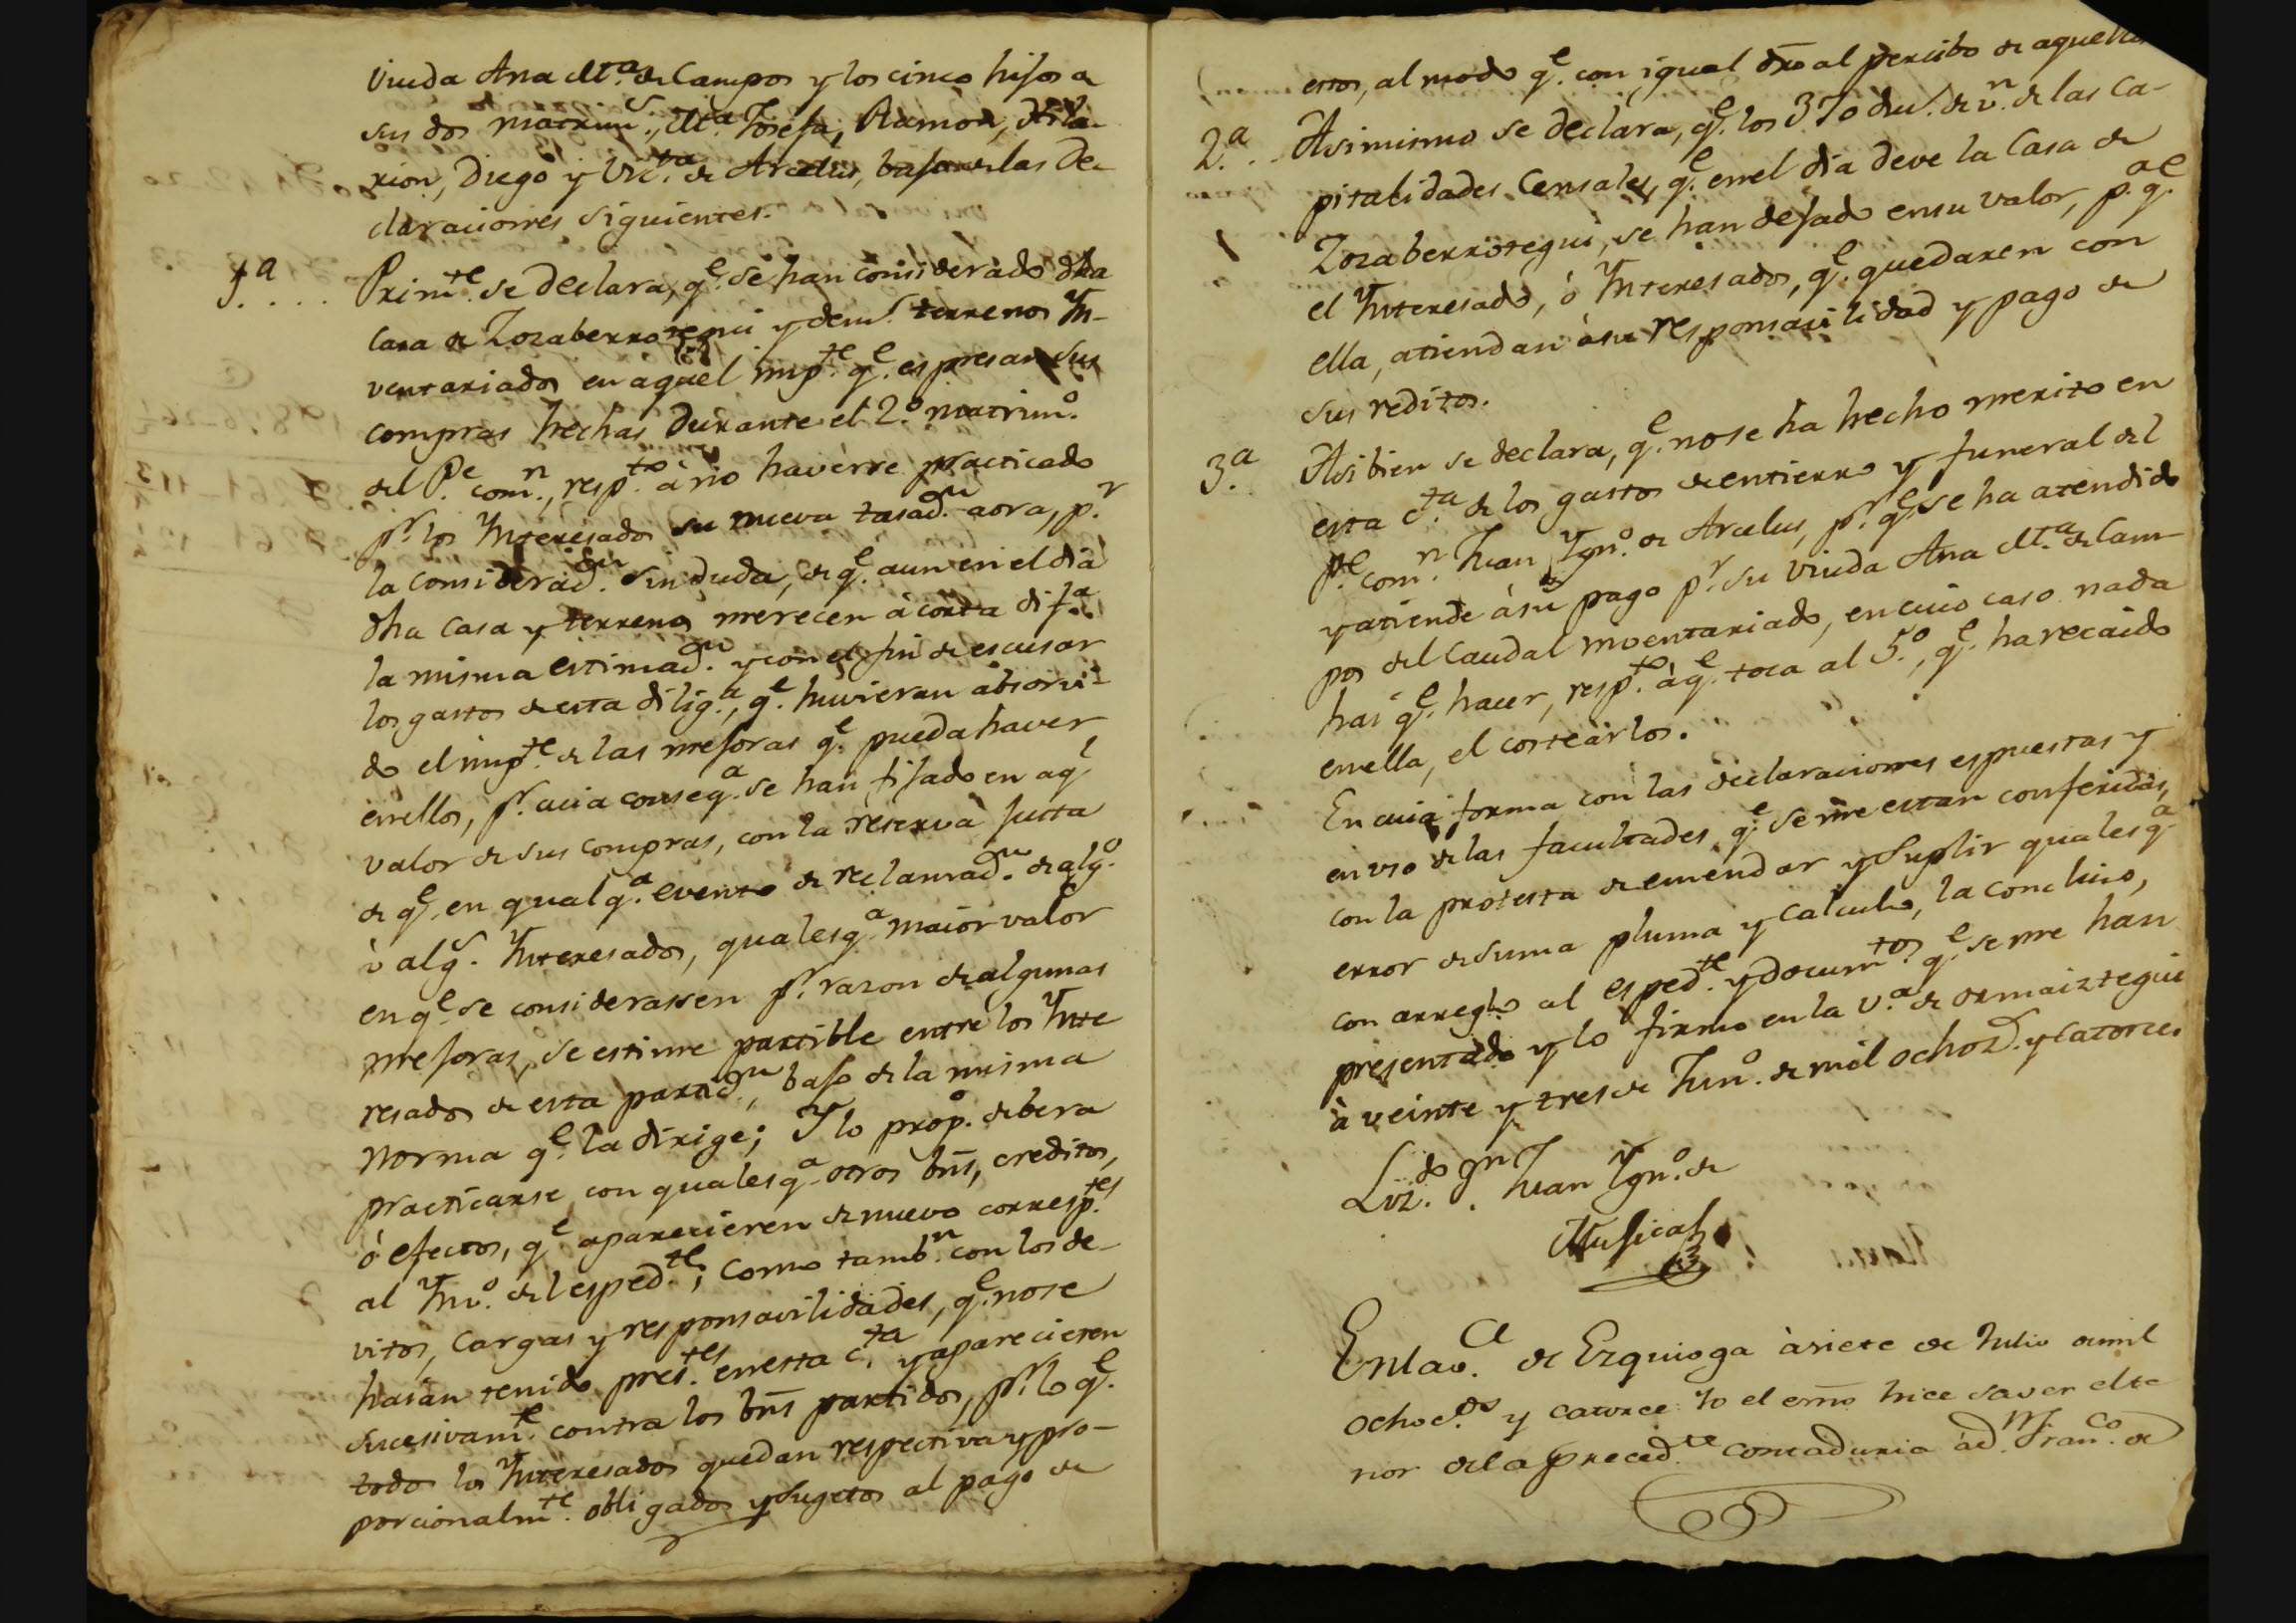 Viuda Ana M.ª de Campos y los cinco hijos de
sus dos matrim.s, M.ª Josefa, Ramon, Hila-
rion, Diego y Vic.ta de Arcelus, bajo de las De-
claraciones siguientes.
1.ª .... Prim.te se declara, q.e se han considerado dha
Casa de Zozaberrotegui y dem.s terrenos Yn-
ventariados en aquel imp.te q.e espresan sus
compras hechas durante el 2.º matrim.º
del P.e com.n, resp.to à no haverse practicado
p.r los Ynteresados su nueva tasad.n aora, p.r
la considerad.n sin duda, de q.e aun en el dia
dha casa y terrenos merecen à corta dif.ª
la misma estimad.n y con el fin de escusar
los gastos de esta dilig.ª, q.e huvieran absorvi-
do el imp.te de las mejoras q.e pueda haver
en ellos, p.r cuia conseq.ª se han fijado en aq.l
valor de sus compras, con la reserva justa
de q.e en qualq.ª evento de reclamad.n de alg.º
ò alg.s Ynteresados, qualesq.ª maior valor
en q.e se considerassen p.r razon de algunas
mejoras, se estime partible entre los Ynte
resados de esta partid.n, bajo de la misma
norma q.e la dirige; Y lo prop.º debera
practicarse con qualesq.ª otros bns, creditos,
ò efectos, q.e aparecieren de nuevo corresp.tes
al Ynv.º del esped.te; como tamb.n con los de-
vitos, cargas y responsavilidades, q.e no se
haian tenido pres.tes en esta c.ta y aparecieren
sucesivam.te contra los bns partidos, p.r lo q.e
todos los Ynteresados quedan respectiva y pro-
porcionalm.te obligados y sugetos al pago de
estos, al modo q.e con igual dro al percibo de aquellos
2.ª .. Asimismo se declara, q.e los 370 duc.s de v.n de las Ca-
pitalidades Censales, q.e en el dia deve la Casa de
Zozaberrotegui, se han dejado en su valor, p.ª q.e
el Ynteresado, ò Ynteresados, q.e quedaren con
ella, atiendan à su responsavilidad y pago de
sus reditos.
3.ª Asi bien se declara, q.e no se ha hecho merito en
esta c.ta de los gastos de entierro y funeral del
P.e com.n Juan Ygn.º de Arcelus, p.r q.e se ha atendido
y atiende à su pago p.r su Viuda Ana M.ª de Cam-
pos del Caudal inventariado, en cuio caso nada
hai q.e hacer, resp.to à q.e toca al 5.º, q.e ha recaido
en ella, el costearlos.
En cuia forma con las declaraciones espuestas y
en uso de las facultades q.e se me estan conferidas,
con la protesta de emendar y suplir qualesq.ª
error de suma pluma y calculo, la concluio,
con arreglo al esped.te y docum.tos q.e se me han
presentado y lo firmo en la V.ª de Ormaiztegui
à veinte y tres de Jun.º de mil ochoz.s y catorce.
Liz.do D.n Juan Ygn.º de
Mujica
En la v.ª de Ezquioga à siete de Julio de mil
ochoc.os y catorce Yo el esno hice saver el te
nor de la preced.te contaduria à d.n Fran.co de